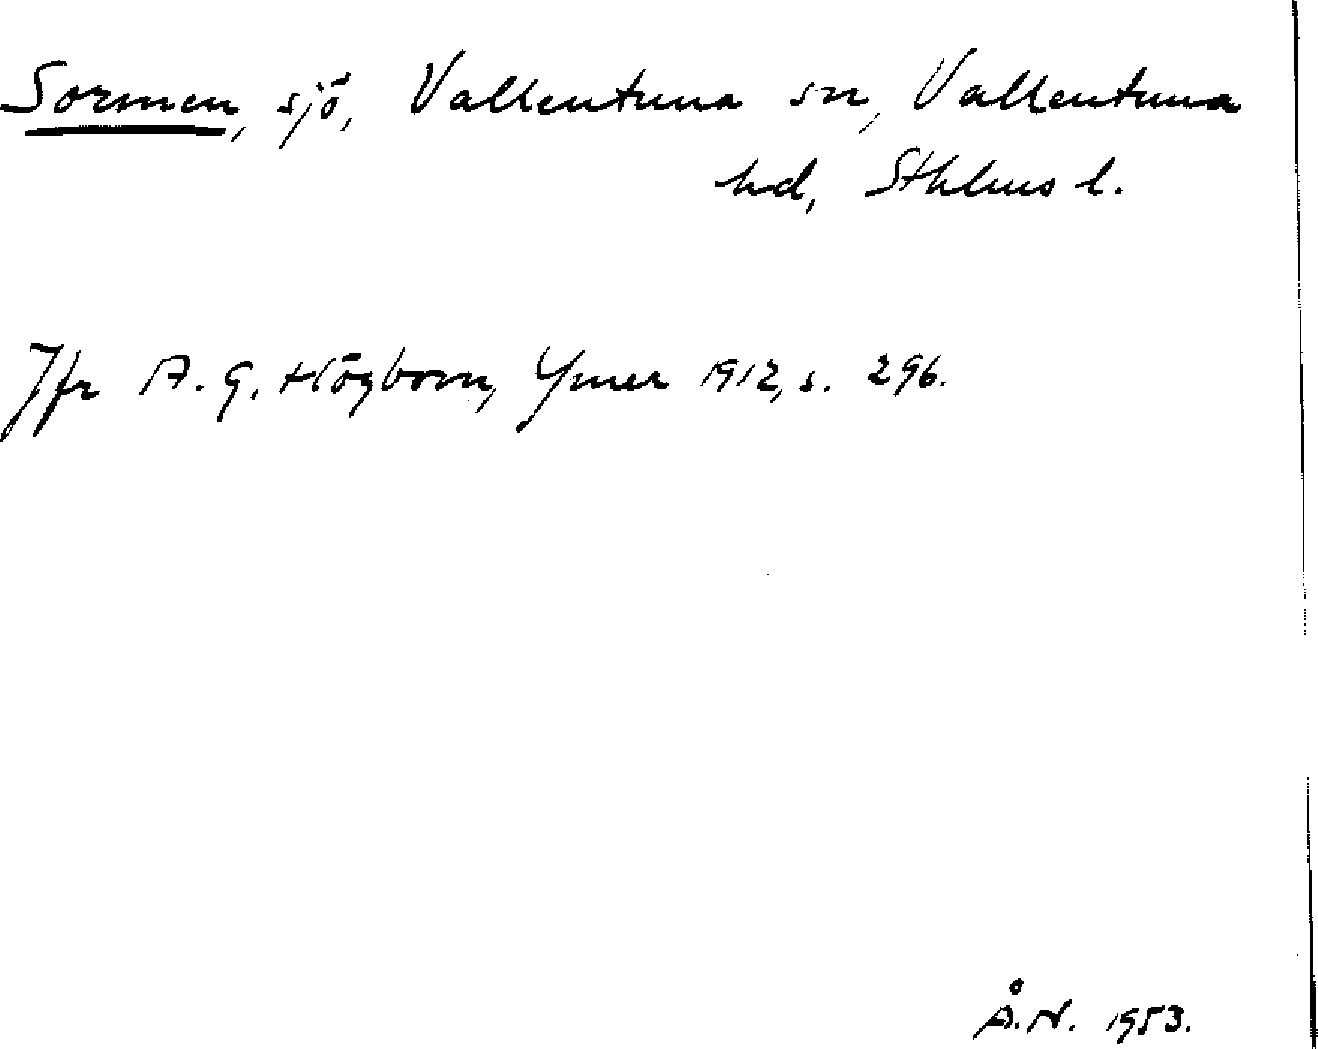 Sormen, sjö, Vallentuna sn, Vallentuna
hd, Sthlms l.
Jfr A. G. Högbom, Ymer 1912, s. 296.
Å. N. 1953.